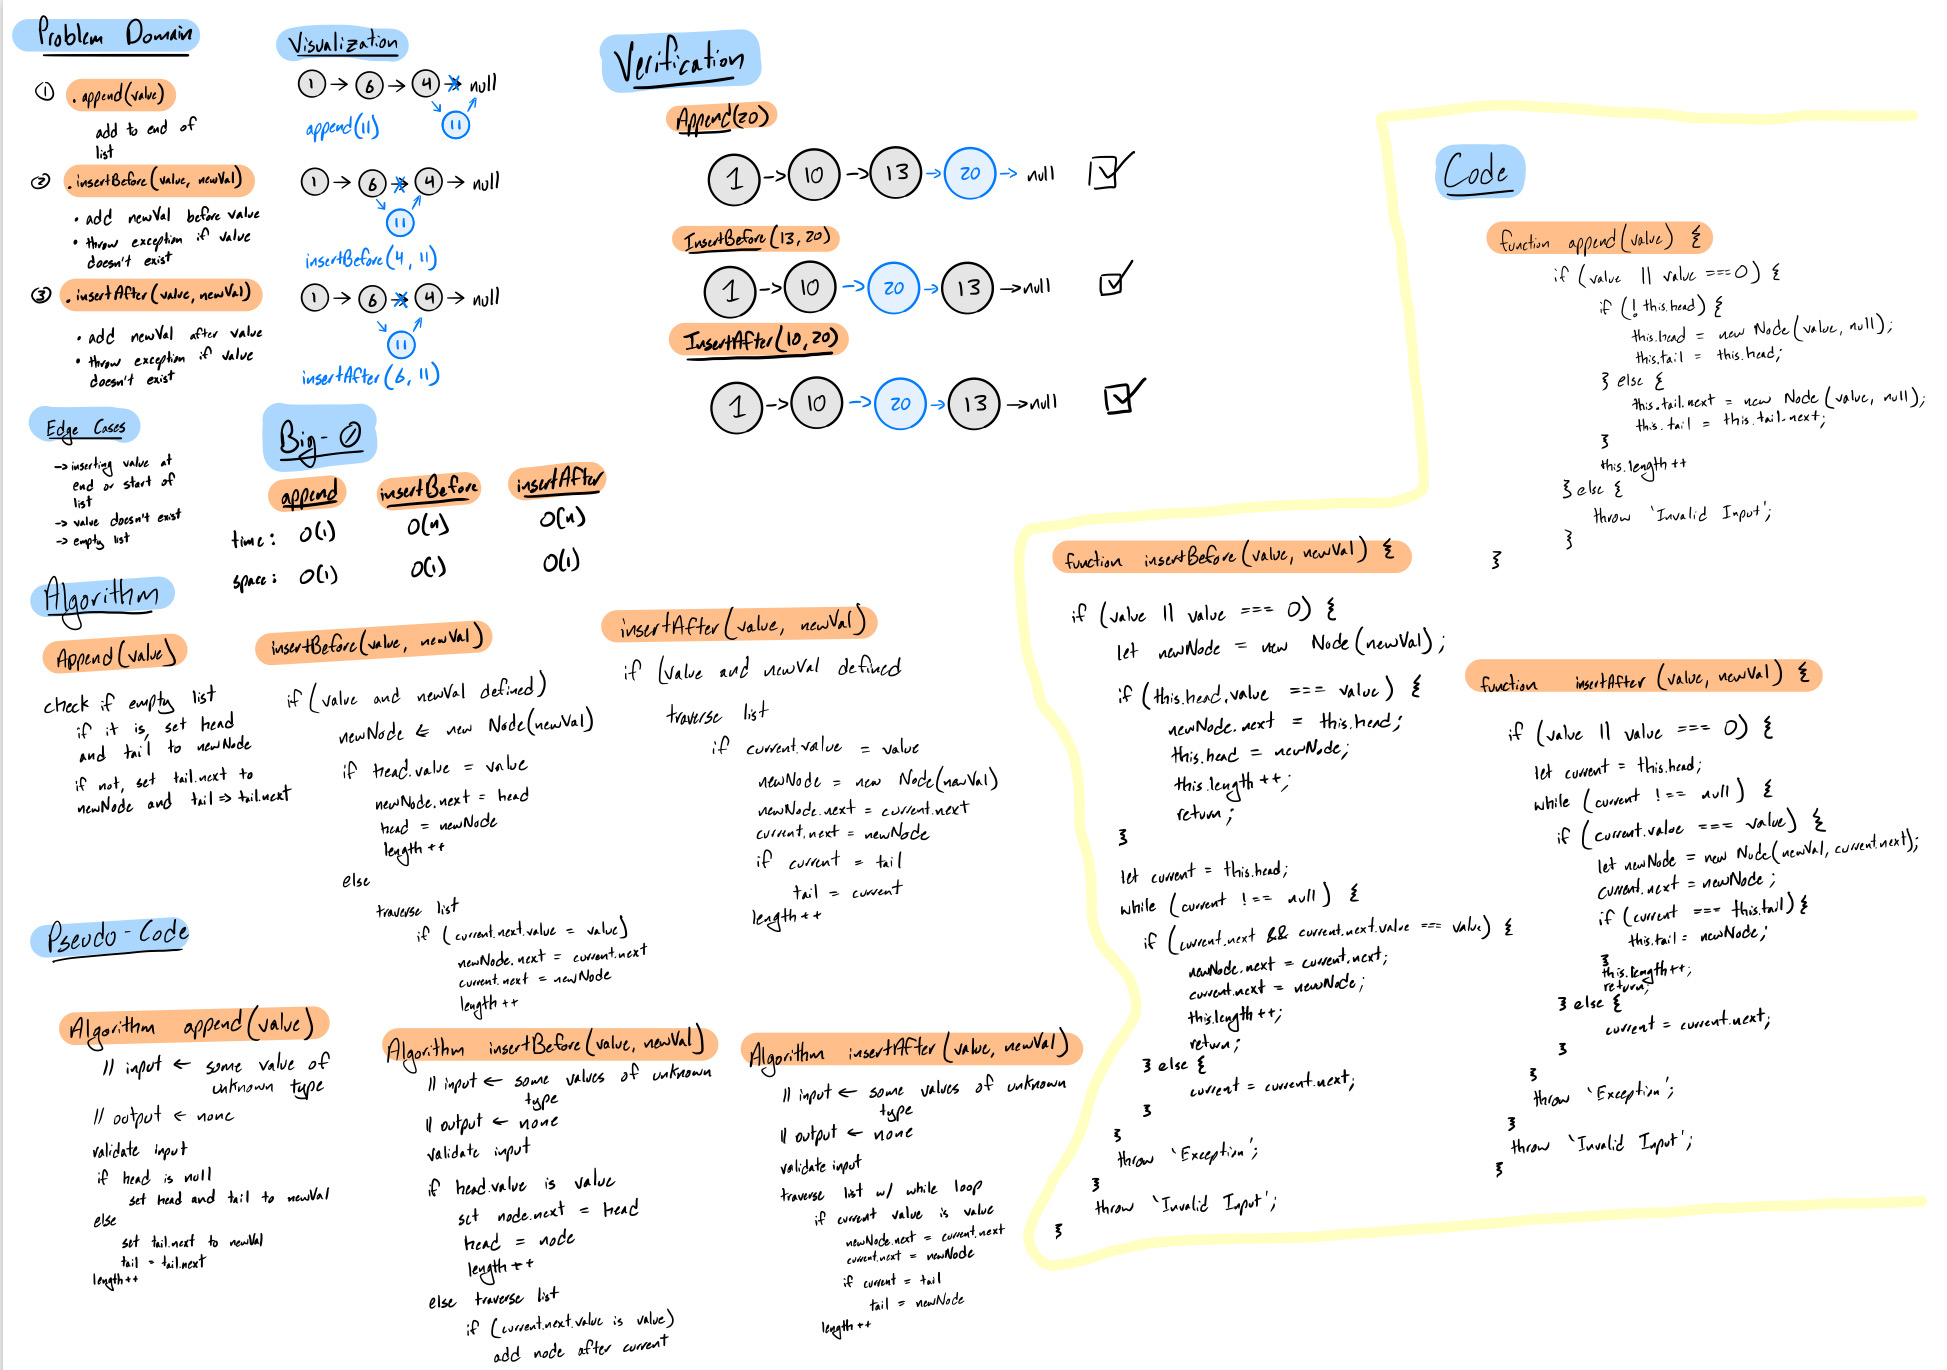 Problem Domain
① .append(value)
add to end of
list
② .insertBefore(value, newVal)
• add newVal before value
• throw exception if value
doesn't exist
③ .insertAfter(value, newVal)
• add newVal after value
• throw exception if value
doesn't exist
Visualization
1 → 6 → 4 → null
11
append(11)
1 → 6 → 4 → null
11
insertBefore(4, 11)
1 → 6 → 4 → null
11
insertAfter(6, 11)
Verification
Append(20)
1 → 10 → 13 → 20 → null
InsertBefore(13, 20)
1 → 10 → 20 → 13 → null
InsertAfter(10, 20)
1 → 10 → 20 → 13 → null
Edge Cases
→ inserting value at
end or start of
list
→ value doesn't exist
→ empty list
Big-O
append insertBefore insertAfter
time: O(1) O(n) O(n)
space: O(1) O(1) O(1)
Algorithm
Append(value)
check if empty list
if it is, set head
and tail to newNode
if not, set tail.next to
newNode and tail ⇒ tail.next
insertBefore(value, newVal)
if (value and newVal defined)
newNode ← new Node(newVal)
if head.value = value
newNode.next = head
head = newNode
length++
else
traverse list
if (current.next.value = value)
newNode.next = current.next
current.next = newNode
length++
insertAfter(value, newVal)
if (value and newVal defined
traverse list
if current.value = value
newNode = new Node(newVal)
newNode.next = current.next
current.next = newNode
if current = tail
tail = current
length++
Pseudo-Code
Algorithm append(value)
// input ← some value of
unknown type
// output ← none
validate input
if head is null
set head and tail to newVal
else
set tail.next to newVal
tail = tail.next
length++
Algorithm insertBefore(value, newVal)
// input ← some values of unknown
type
// output ← none
validate input
if head.value is value
set node.next = head
head = node
length++
else traverse list
if (current.next.value is value)
add node after current
Algorithm insertAfter(value, newVal)
// input ← some values of unknown
type
// output ← none
validate input
traverse list w/ while loop
if current value is value
newNode.next = current.next
current.next = newNode
if current = tail
tail = newNode
length++
Code
function append(value) {
if (value || value === 0) {
if (! this.head) {
this.head = new Node(value, null);
this.tail = this.head;
} else {
this.tail.next = new Node(value, null);
this.tail = this.tail.next;
}
this.length++
} else {
throw 'Invalid Input';
}
}
function insertBefore(value, newVal) {
if (value || value === 0) {
let newNode = new Node(newVal);
if (this.head.value === value) {
newNode.next = this.head;
this.head = newNode;
this.length++;
return;
}
let current = this.head;
while (current !== null) {
if (current.next && current.next.value === value) {
newNode.next = current.next;
current.next = newNode;
this.length++;
return;
} else {
current = current.next;
}
}
throw 'Exception';
}
throw 'Invalid Input';
}
function insertAfter(value, newVal) {
if (value || value === 0) {
let current = this.head;
while (current !== null) {
if (current.value === value) {
let newNode = new Node(newVal, current.next);
current.next = newNode;
if (current === this.tail) {
this.tail = newNode;
}
this.length++;
return;
} else {
current = current.next;
}
}
throw 'Exception';
}
throw 'Invalid Input';
}